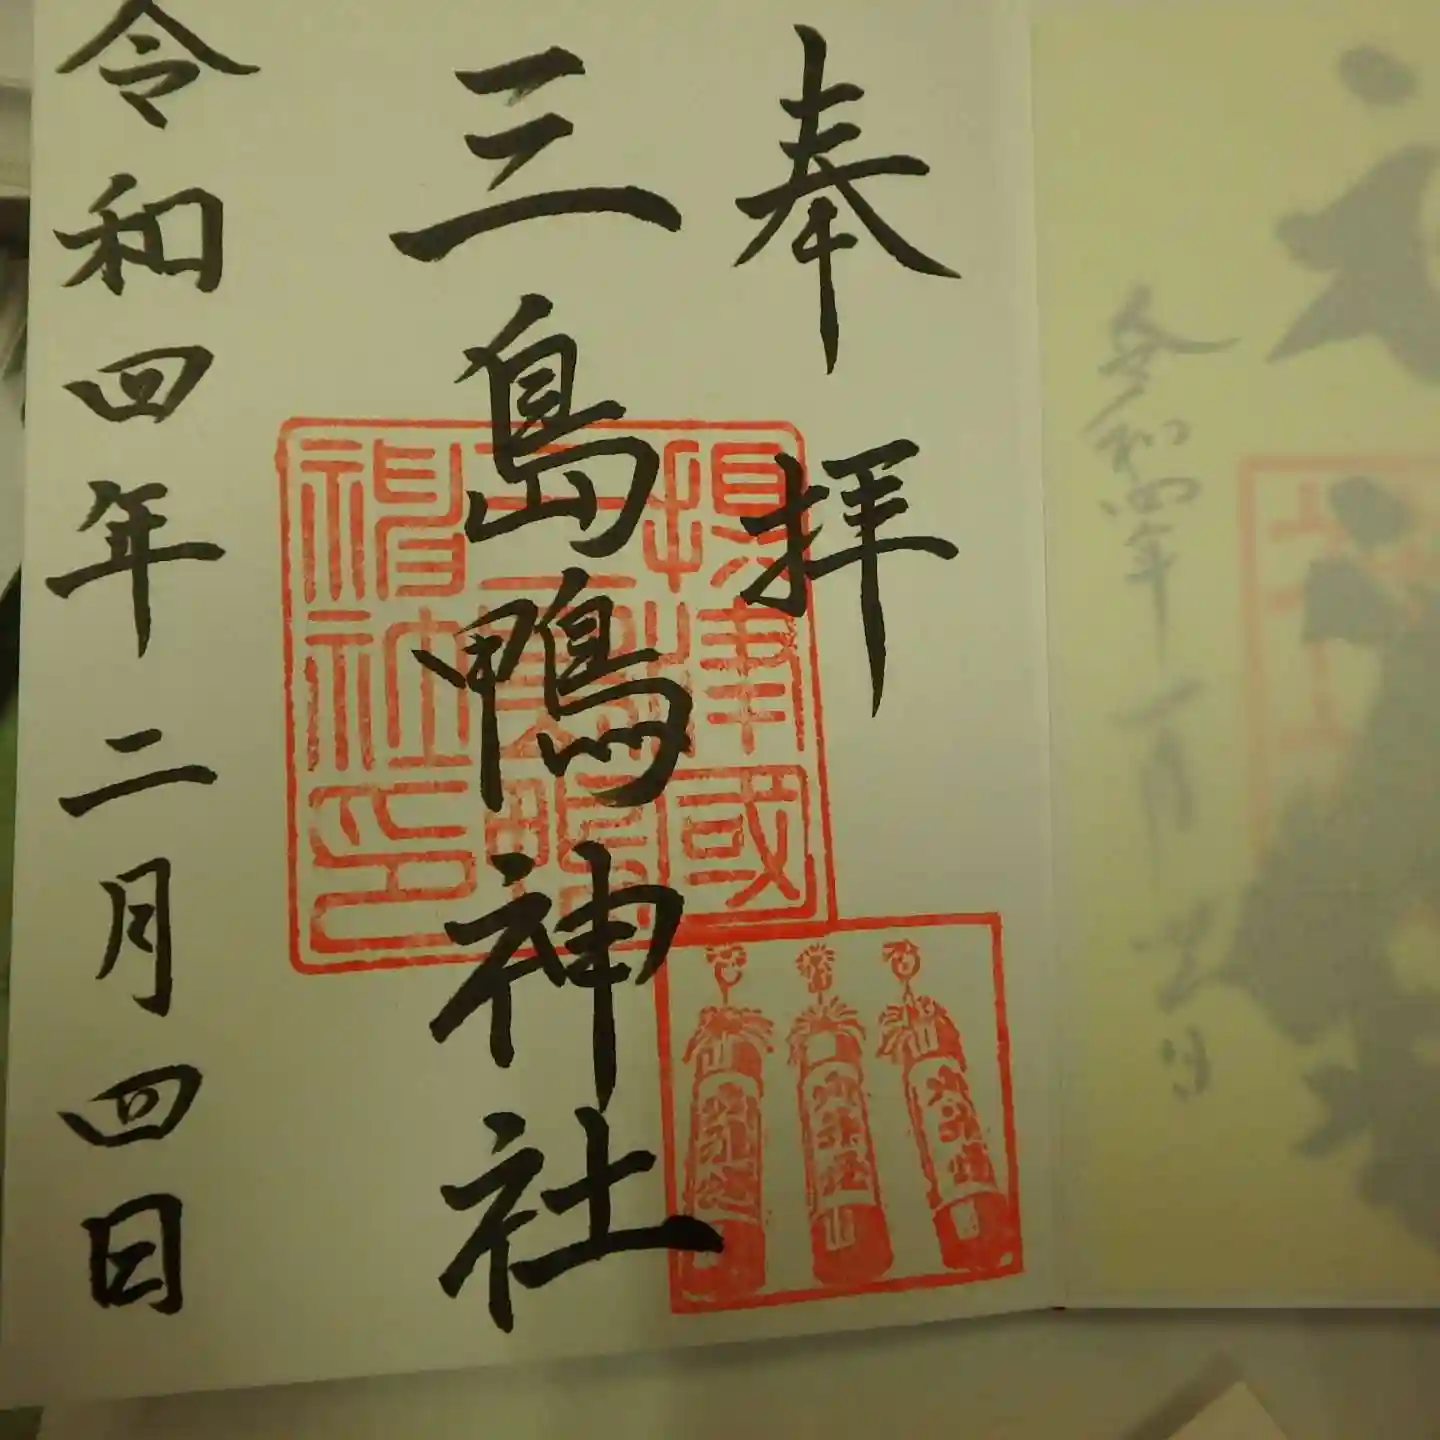 奉拝
三島鴨神社
令和四年二月四日
摂津國
三島鴨
神社印
令和四年